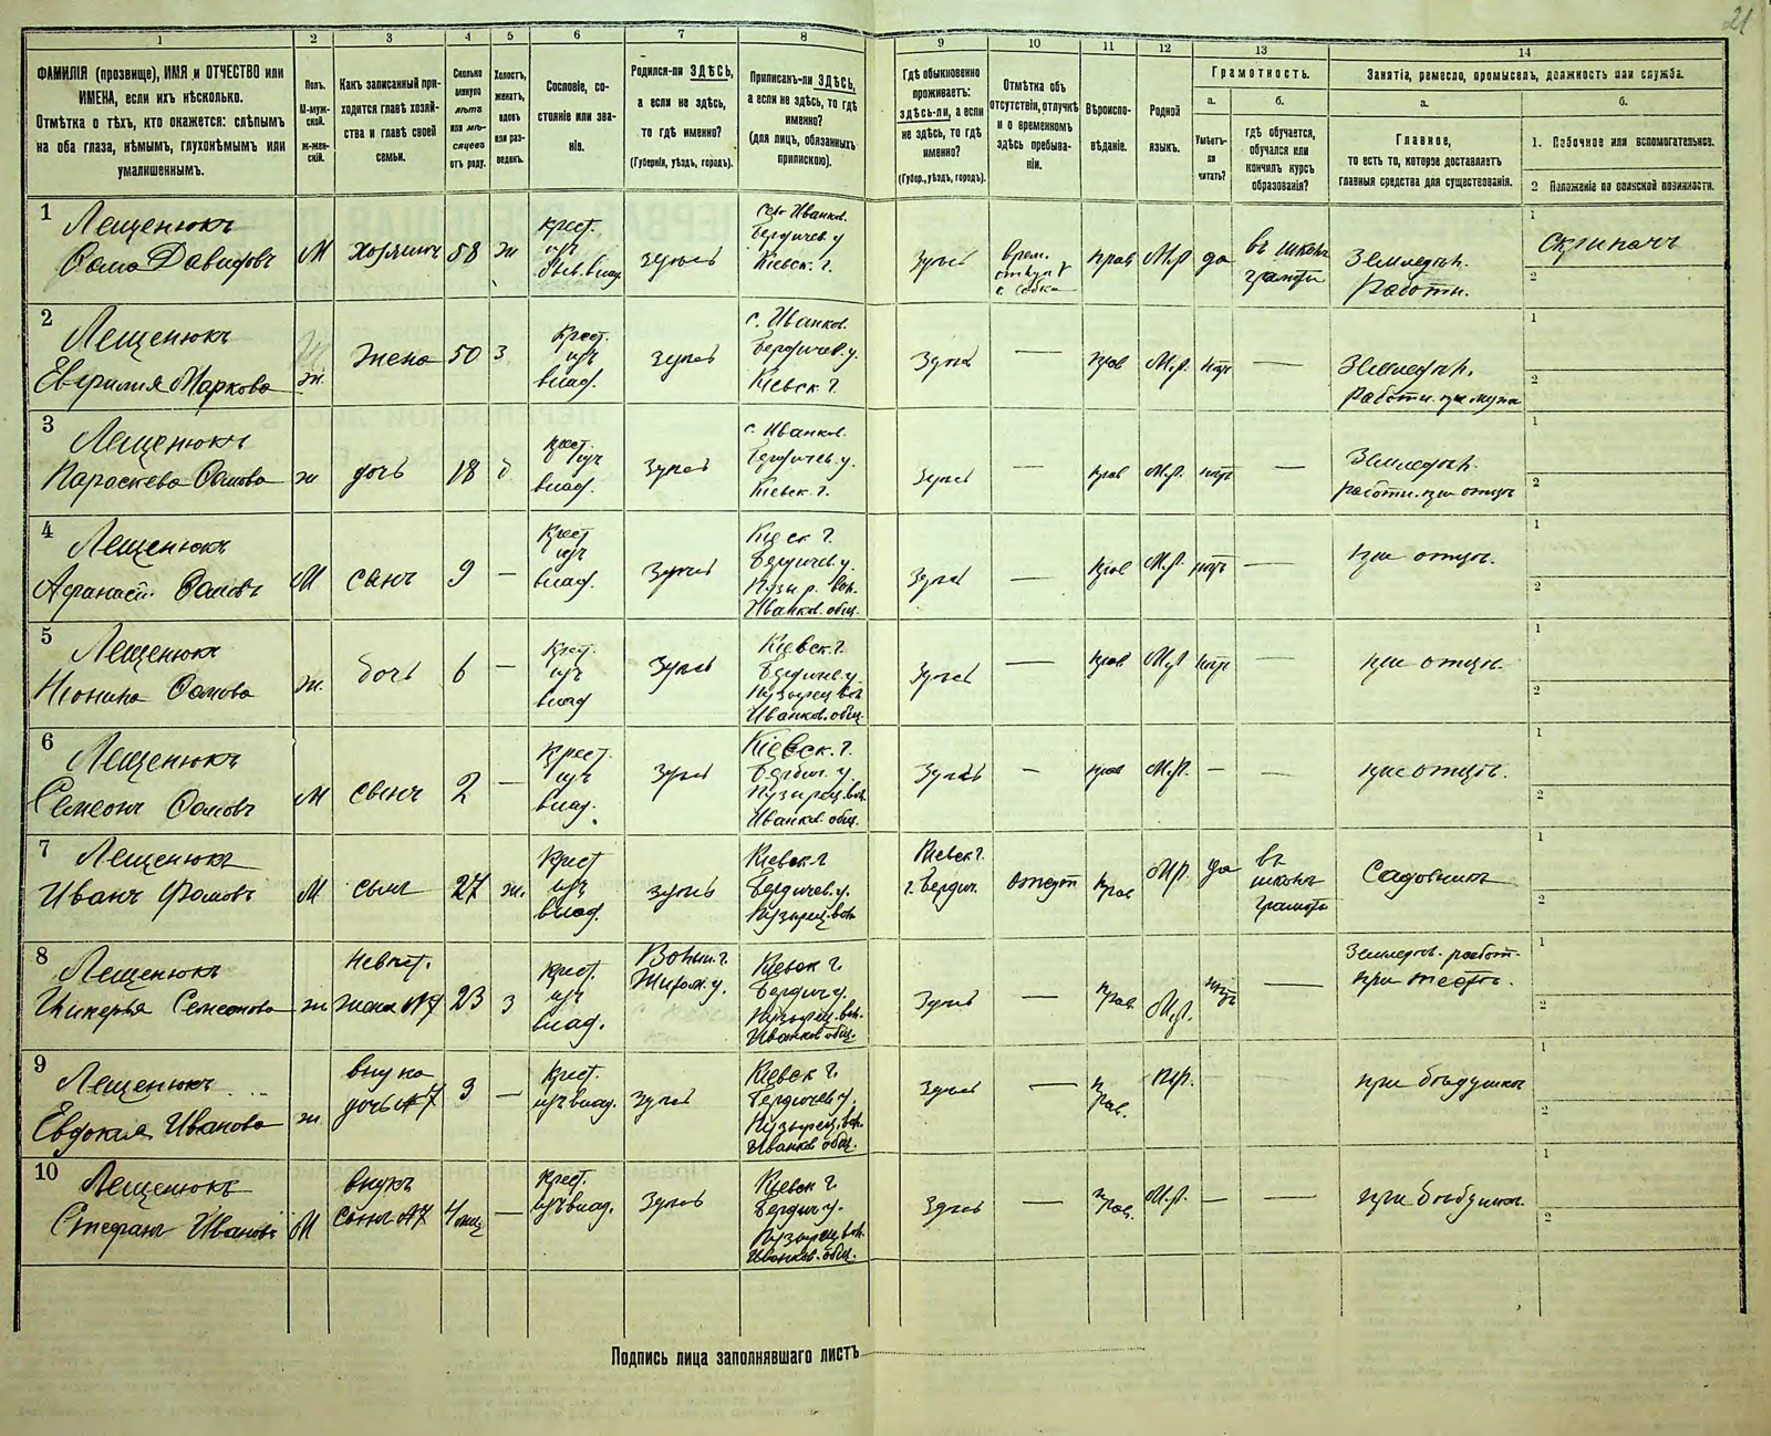 21
1 2 3 4 5 6 7 8 9 10 11 12 13 14
ФАМИЛІЯ (прозвище), ИМЯ и ОТЧЕСТВО или
ИМЕНА, если ихъ нѣсколько.
Отмѣтка о тѣхъ, кто окажется: слѣпымъ
на оба глаза, нѣмымъ, глухонѣмымъ или
умалишеннымъ.
Полъ.
М-муж-
ской.
ж-жен-
скій.
Какъ записанный при-
ходится главѣ хозяй-
ства и главѣ своей
семьи.
Сколько
минуло
лѣтъ
или мѣ-
сяцевъ
отъ роду.
Холостъ,
женатъ,
вдовъ
или раз-
веденъ.
Сословіе, со-
стояніе или зва-
ніе.
Родился-ли ЗДѢСЬ,
а если не здѣсь,
то гдѣ именно?
(Губернія, уѣздъ, городъ).
Приписанъ-ли ЗДѢСЬ,
а если не здѣсь, то гдѣ
именно?
(для лицъ, обязанныхъ
припискою).
Гдѣ обыкновенно
проживаетъ:
здѣсь-ли, а если
не здѣсь, то гдѣ
именно?
(Губер., уѣздъ, городъ).
Отмѣтка объ
отсутствіи, отлучкѣ
и о временномъ
здѣсь пребыва-
ніи.
Вѣроиспо-
вѣданіе.
Родной
языкъ.
Грамотность.
а.
Умѣетъ-
ли
читать?
б.
гдѣ обучается,
обучался или
кончилъ курсъ
образованія?
Занятіе, ремесло, промыселъ, должность или служба.
а.
Главное,
то есть то, которое доставляетъ
главныя средства для существованія.
б.
1. Побочное или вспомогательное.
2 Положеніе по воинской повинности.
1
Лещенюкъ
Ѳома Давидовъ
М
хозяинъ
58
ж
крест.
изъ
здѣсь
Село Иванков.
Бердичев. у
Кіевск. г.
Здѣсь
Врем.
прав
М.р
да
въ школѣ
грамоты
Земледѣл.
Работн.
1
Скрипачъ
2
2
Лещенюкъ
Евфимія Маркова
ж.
жена
50
з
Крест.
изъ
влад.
здѣсь
с. Иванков.
Бердичев. у.
Кіевск. г.
Здѣсь
—
прав
М.р.
нѣтъ
—
Земледѣл.
Работн. при мужѣ
1
2
3
Лещенюкъ
Параскева Ѳомова
ж
дочь
18
д
крест.
изъ
влад.
Здѣсь
с. Иванков.
Бердичев. у.
Кіевск. г.
Здѣсь
—
прав
М.р.
нѣтъ
—
Земледѣл.
Работн. при отцѣ
1
2
4
Лещенюкъ
Афанасій Ѳомовъ
М
сынъ
9
—
Крест
изъ
влад.
Здѣсь
Кіевск г.
Бердичев. у.
Пузыр. вол.
Иванков. общ.
Здѣсь
—
прав
М.р.
нѣтъ
—
при отцѣ.
1
2
5
Лещенюкъ
Нионила Ѳомова
ж.
дочь
6
—
Крест.
изъ
влад
Здѣсь
Кіевск. г.
Бердичев. у.
Пузырец. вол
Иванков. общ.
Здѣсь
—
прав.
М.р
нѣтъ
—
при отцѣ.
1
2
6
Лещенюкъ
Семеонъ Ѳомовъ
М
сынъ
2
—
Крест.
изъ
влад.
Здѣсь
Кіевск. г.
Бердич. у.
Пузырец. вол.
Иванков. общ.
Здѣсь
—
прав
М.р.
—
—
при отцѣ.
1
2
7
Лещенюкъ
Иванъ Ѳомовъ
М
сынъ
27
ж.
Крест
изъ
влад.
здѣсь
Кіевск г
Бердичев. у.
Пузырец. вол
Кіевск г.
г. Бердич.
прав
М.р.
да
въ
школѣ
грамоты
Садовникъ
1
2
8
Лещенюкъ
Гликерья Семеонова
ж
невѣст.
жена №7
23
з
Крест.
изъ
влад.
Волын. г.
Житом. у.
Кіевск г.
Бердич у.
Пузырец. вол.
Иванков общ.
Здѣсь
—
прав
М.р.
нѣтъ
—
Земледѣл. работ.
при тестѣ.
1
2
9
Лещенюкъ
Евдокія Иванова
ж.
внучка
дочь №7
3
—
Крест.
изъ влад.
Здѣсь
Кіевск г.
Бердичев у.
Пузырец. вол.
Иванков общ.
Здѣсь
—
прав.
М.р.
при дѣдушкѣ
1
2
10
Лещенюкъ
Стефанъ Ивановъ
М
внукъ
сынъ №7
4 мѣс
—
Крест.
изъ влад.
Здѣсь
Кіевск г.
Бердич у.
Пузырец вол.
Иванков. общ.
Здѣсь
—
прав.
М.р.
—
—
при дѣдушкѣ
1
2
Подпись лица заполнявшаго листъ